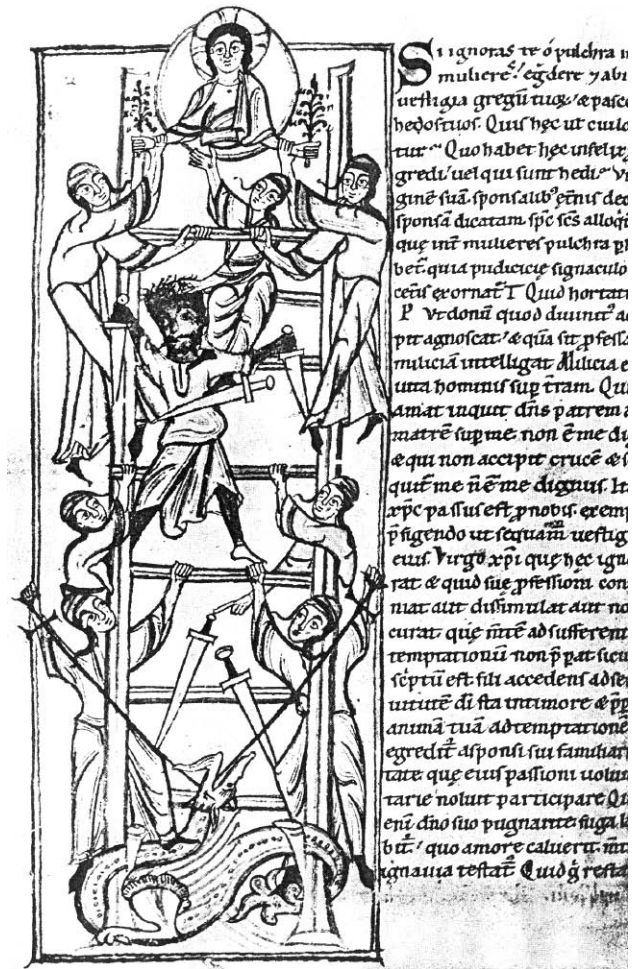 Si ignoras te ó pulchra in
muliereſ. egdere ⁊ abi
ueſtigia gregū tuoꝝ. & paſce
hedoſ tuoſ. Quiſ hęc ut cuilo
tur Quo habet hęc infelix
gredi uel qui ſunt hedi
ginē ſuā ſponſalibꝰ ęt̄niſ dec
ſponſā dicatam ſpc ſcſ alloq̄t
quę int̄ mulieres pulchra
bet̄. quia pudicicię ſignaculo
cet̄iſ exornat̄ T Quid hortat
P Vt donū quod diuinit̄ ac
pit agnoſcat. & q̄a ſit ꝓfeſſa
miliciā intelligat Milicia e
uita hominiſ ſup t̄ram. Qui
amat inquit dn̄ſ patrem a
matrē ſup me. non ē me di
& qui non accipit crucē & ſe
quit̄ me n̄ ē me dignuſ. Ita
xp̄c paſſuſ eſt ꝓ nobiſ. exemp
p̄figendo ut ſequam̄ ueſtigi
eiuſ. Virgo xp̄i quę hęc igno
rat & quid ſuę ꝓfeſſioni con
niat aut diſſimulat aut no
curat. quę m̄tē ad ſufferent
temptationū non p̄parat ſicut
ſcptū eſt fili accedenſ ad ſer
uitutē di ſta in timore & p̄p
animā tuā ad temptationē
egredit̄ a ſponſi ſui familiari
tate quę eiuſ paſſioni uolun
tarie noluit participare Qui
eni dn̄o ſuo pugnante fuga la
bit̄. quo amore caluerit int
ignauia teſtat̄ Quid g̊ reſta